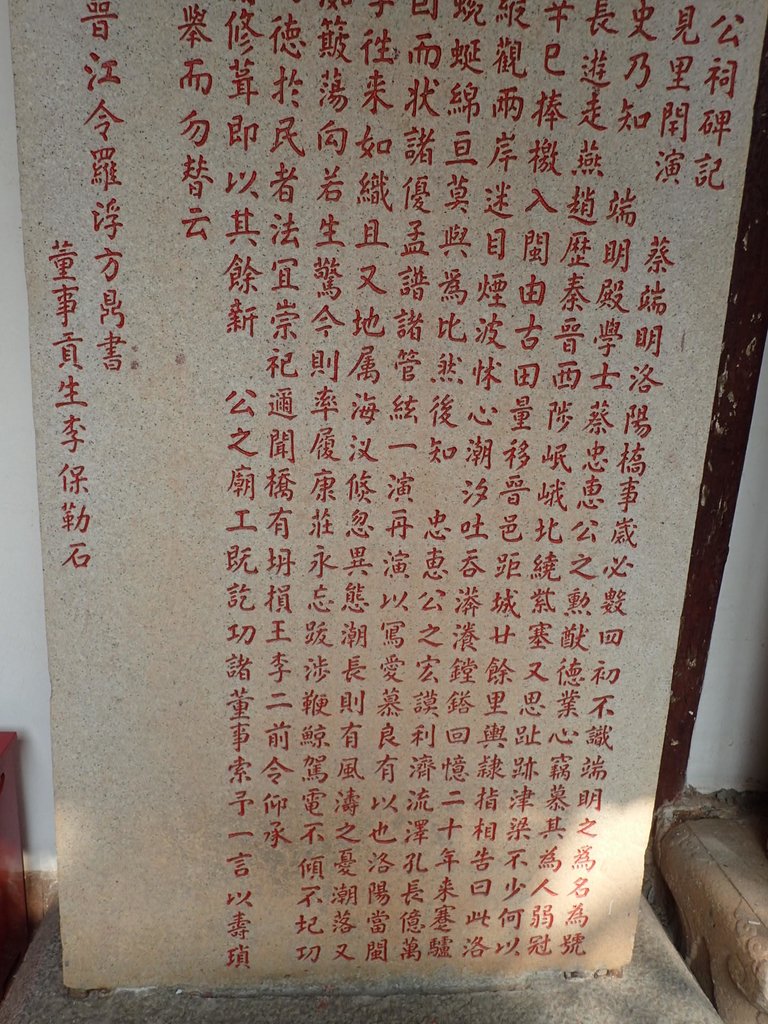 公祠碑記
見里閈演 蔡端明洛陽橋事歲必數四初不識端明之為名為號
史乃知 端明殿學士蔡忠惠公之勲猷德業心竊慕其為人弱冠
長遊走燕趙歷秦晉西陟岷峨北繞紫塞又思趾跡津梁不少何以
辛巳捧檄入閩由古田量移晉邑距城廿餘里輿隸指相告曰此洛
縱觀兩岸迷目煙波怵心潮汐吐吞漭瀁鏜鎝回憶二十年來蹇驢
蜿蜒綿亘莫與為比然後知 忠惠公之宏謨利濟流澤孔長億萬
而狀諸優孟譜諸管絃一演再演以寫愛慕良有以也洛陽當閩
往來如織且又地属海汊倏忽異態潮長則有風濤之憂潮落又
簸蕩向若生驚今則率履康莊永忘跋涉鞭鯨駕電不傾不圮功
德於民者法宜崇祀邇聞橋有坍損王李二前令仰承
修葺即以其餘新 公之廟工既訖功諸董事索予一言以壽瑣
舉而勿替云
晉江令羅浮方鼎書
董事貢生李保勒石